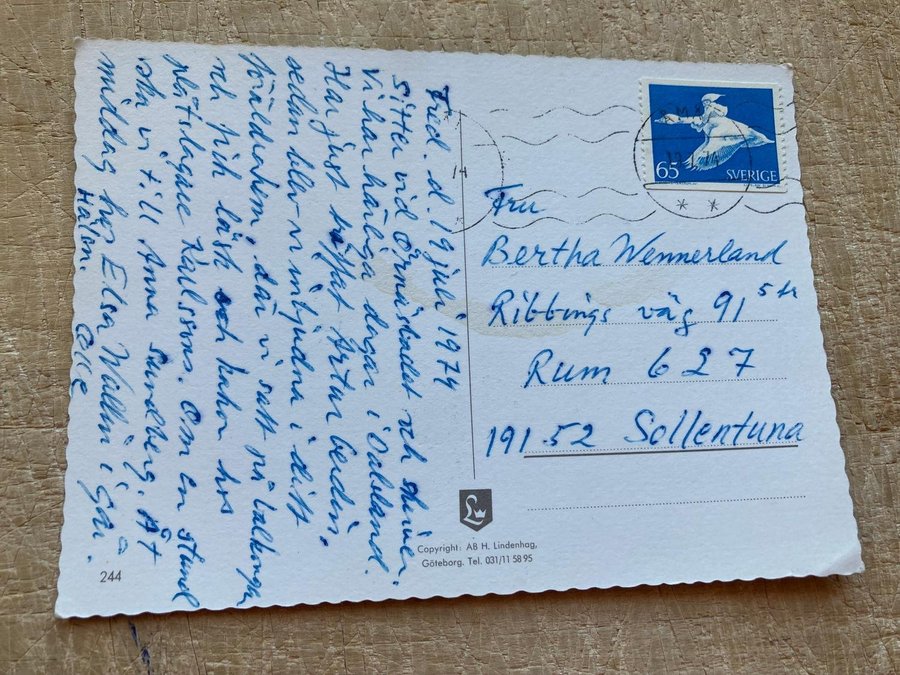 Fred. d. 19 juli 1974
Sitter vid Örnäsbadet och skriver.
Vi har härliga dagar i Dalsland.
Har just träffat Artur
sedan blev vi inbjudna i ditt
föräldrahem där vi satt på balkongen
och fick läsk och kakor hos
plåtslagare Karlssons. Om en stund
ska vi till Anna Sundberg. Åt
middag hos Elsa Wallin i går.
Hälsn. Olle
65 SVERIGE
Fru
Bertha Wennerland
Ribbings väg 91 5 tr
Rum 627
191 52 Sollentuna
L
Copyright: AB H. Lindenhag,
Göteborg. Tel. 031/11 58 95
244